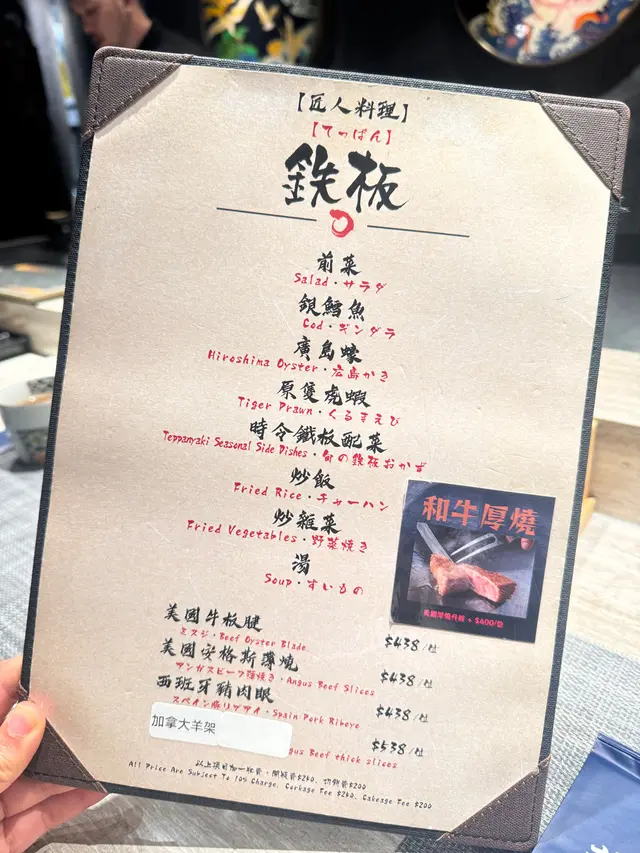 【匠人料理】
【てっぱん】
鉄板
前菜
Salad・サラダ
銀鱈魚
Cod・ギンダラ
廣島蠔
Hiroshima Oyster・広島かき
原隻虎蝦
Tiger Prawn・くるまえび
時令鐵板配菜
Teppanyaki Seasonal Side Dishes・旬の鉄板おかず
炒飯
Fried Rice・チャーハン
炒雜菜
Fried Vegetables・野菜焼き
湯
Soup・すいもの
和牛厚燒
+ $400/位
美國牛板腱
ミスジ・Beef Oyster Blade
$438/位
美國安格斯薄燒
アンガスビーフ薄焼き・Angus Beef Slices
$438/位
西班牙豬肉眼
スペイン豚リブアイ・Spain Pork Ribeye
$438/位
加拿大羊架
$538/位
Angus Beef thick slices
以上項目加一服務，開瓶費$240，切餅費$200
All Price Are Subject To 10% Charge, Corkage Fee $240, Cakeage Fee $200